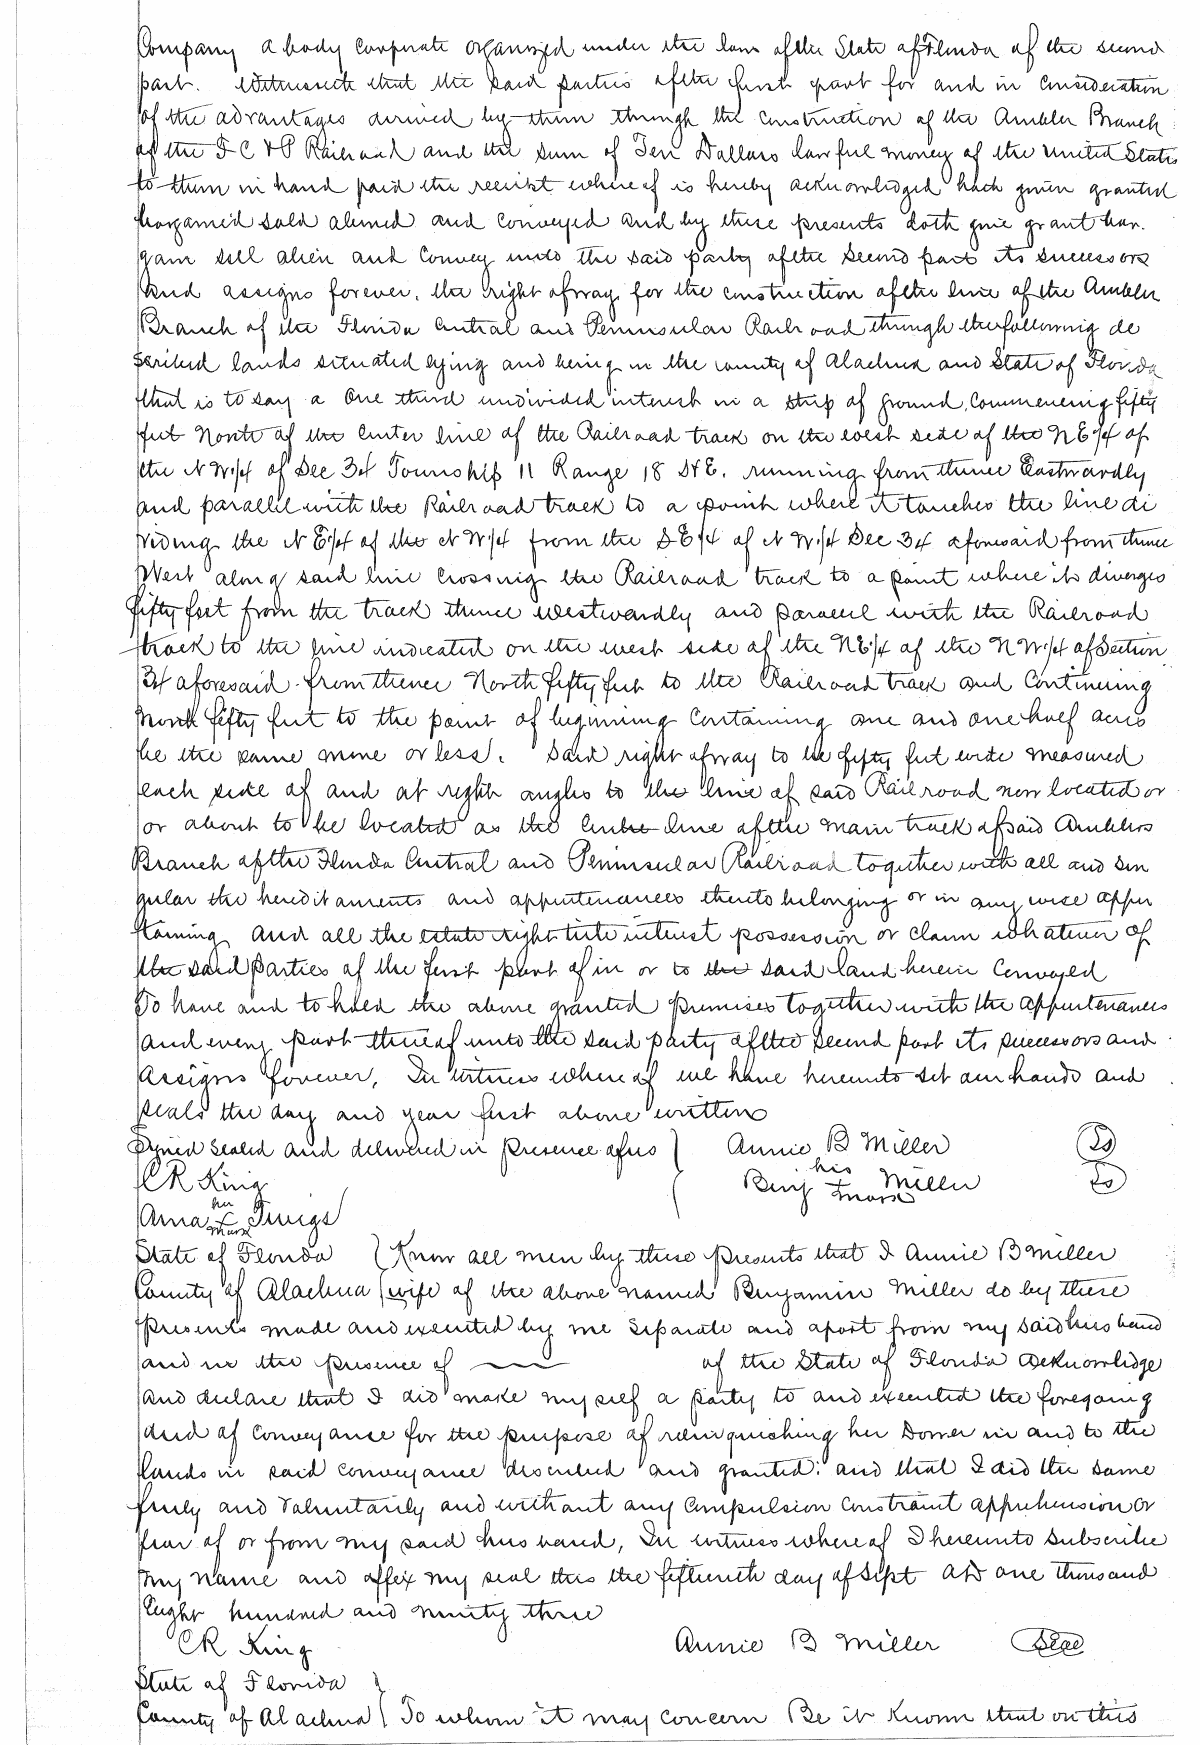 Company a body corporate organized under the law of the State of Florida of the second
part. Witnesseth that the said parties of the first part for and in consideration
of the advantages derived by them through the construction of the Ambler Branch
of the F C & P Railroad and the sum of Ten Dollars lawful money of the United States
to them in hand paid the receipt whereof is hereby acknowledged hath given granted
bargained sold aliened and conveyed and by these presents doth give grant bar-
gain sell alien and convey unto the said party of the second part its successors
and assigns forever, the right of way for the construction of the line of the Ambler
Branch of the Florida Central and Peninsular Railroad through the following de
scribed lands situated lying and being in the county of Alachua and State of Florida
that is to say a One third undivided interest in a strip of ground, commencing fifty
feet North of the Center line of the Railroad track on the west side of the NE¼ of
the NW¼ of Sec 34 Township 11 Range 18 S&E. running from thence Eastwardly
and parallel with the Railroad track to a point where it touches the line di
viding the NE¼ of the NW¼ from the SE¼ of NW¼ Sec 34 aforesaid from thence
West along said line crossing the Railroad track to a point where its diverges
fifty feet from the track thence westwardly and parallel with the Railroad
track to the line indicated on the west side of the NE¼ of the NW¼ of Section
34 aforesaid from thence North fifty feet to the Railroad track and Continuing
North fifty feet to the point of beginning Containing one and one half acres
be the same more or less. Said right of way to be fifty feet wide measured
each side of and at right angles to the line of said Railroad now located or
or about to be located as the Centre line of the main track of said Amblers
Branch of the Florida Central and Peninsular Railroad together with all and sin
gular the hereditaments and appurtenances thereto belonging or in any wise apper
taining and all the estate right title interest possession or claim whatever of
the said parties of the first part of in or to the said land herein Conveyed
To have and to hold the above granted premises together with the appurtenances
and every part thereof unto the said party of the second part its successors and
Assigns forever, In witness whereof we have hereunto set our hands and
seals the day and year first above written
Signed Sealed and delivered in presence of us } Annie B Miller LS
C R King Benj his mark Miller LS
Anna her mark Twigs
State of Florida } Know all men by these presents that I Annie B Miller
County of Alachua } wife of the above named Benjamin Miller do by these
presents made and executed by me separate and apart from my said husband
and in the presence of of the State of Florida acknowledge
and declare that I did make myself a party to and executed the foregoing
deed of conveyance for the purpose of relinquishing her Dower in and to the
lands in said conveyance described and granted: and that I did the same
freely and voluntarily and without any compulsion constraint apprehension or
fear of or from my said husband, In witness whereof I hereunto subscribe
my name and affix my seal this the fifteenth day of Sept AD one thousand
Eight hundred and ninety three
C R King Annie B Miller Seal
State of Florida }
County of Alachua } To whom it may concern Be it known that on this